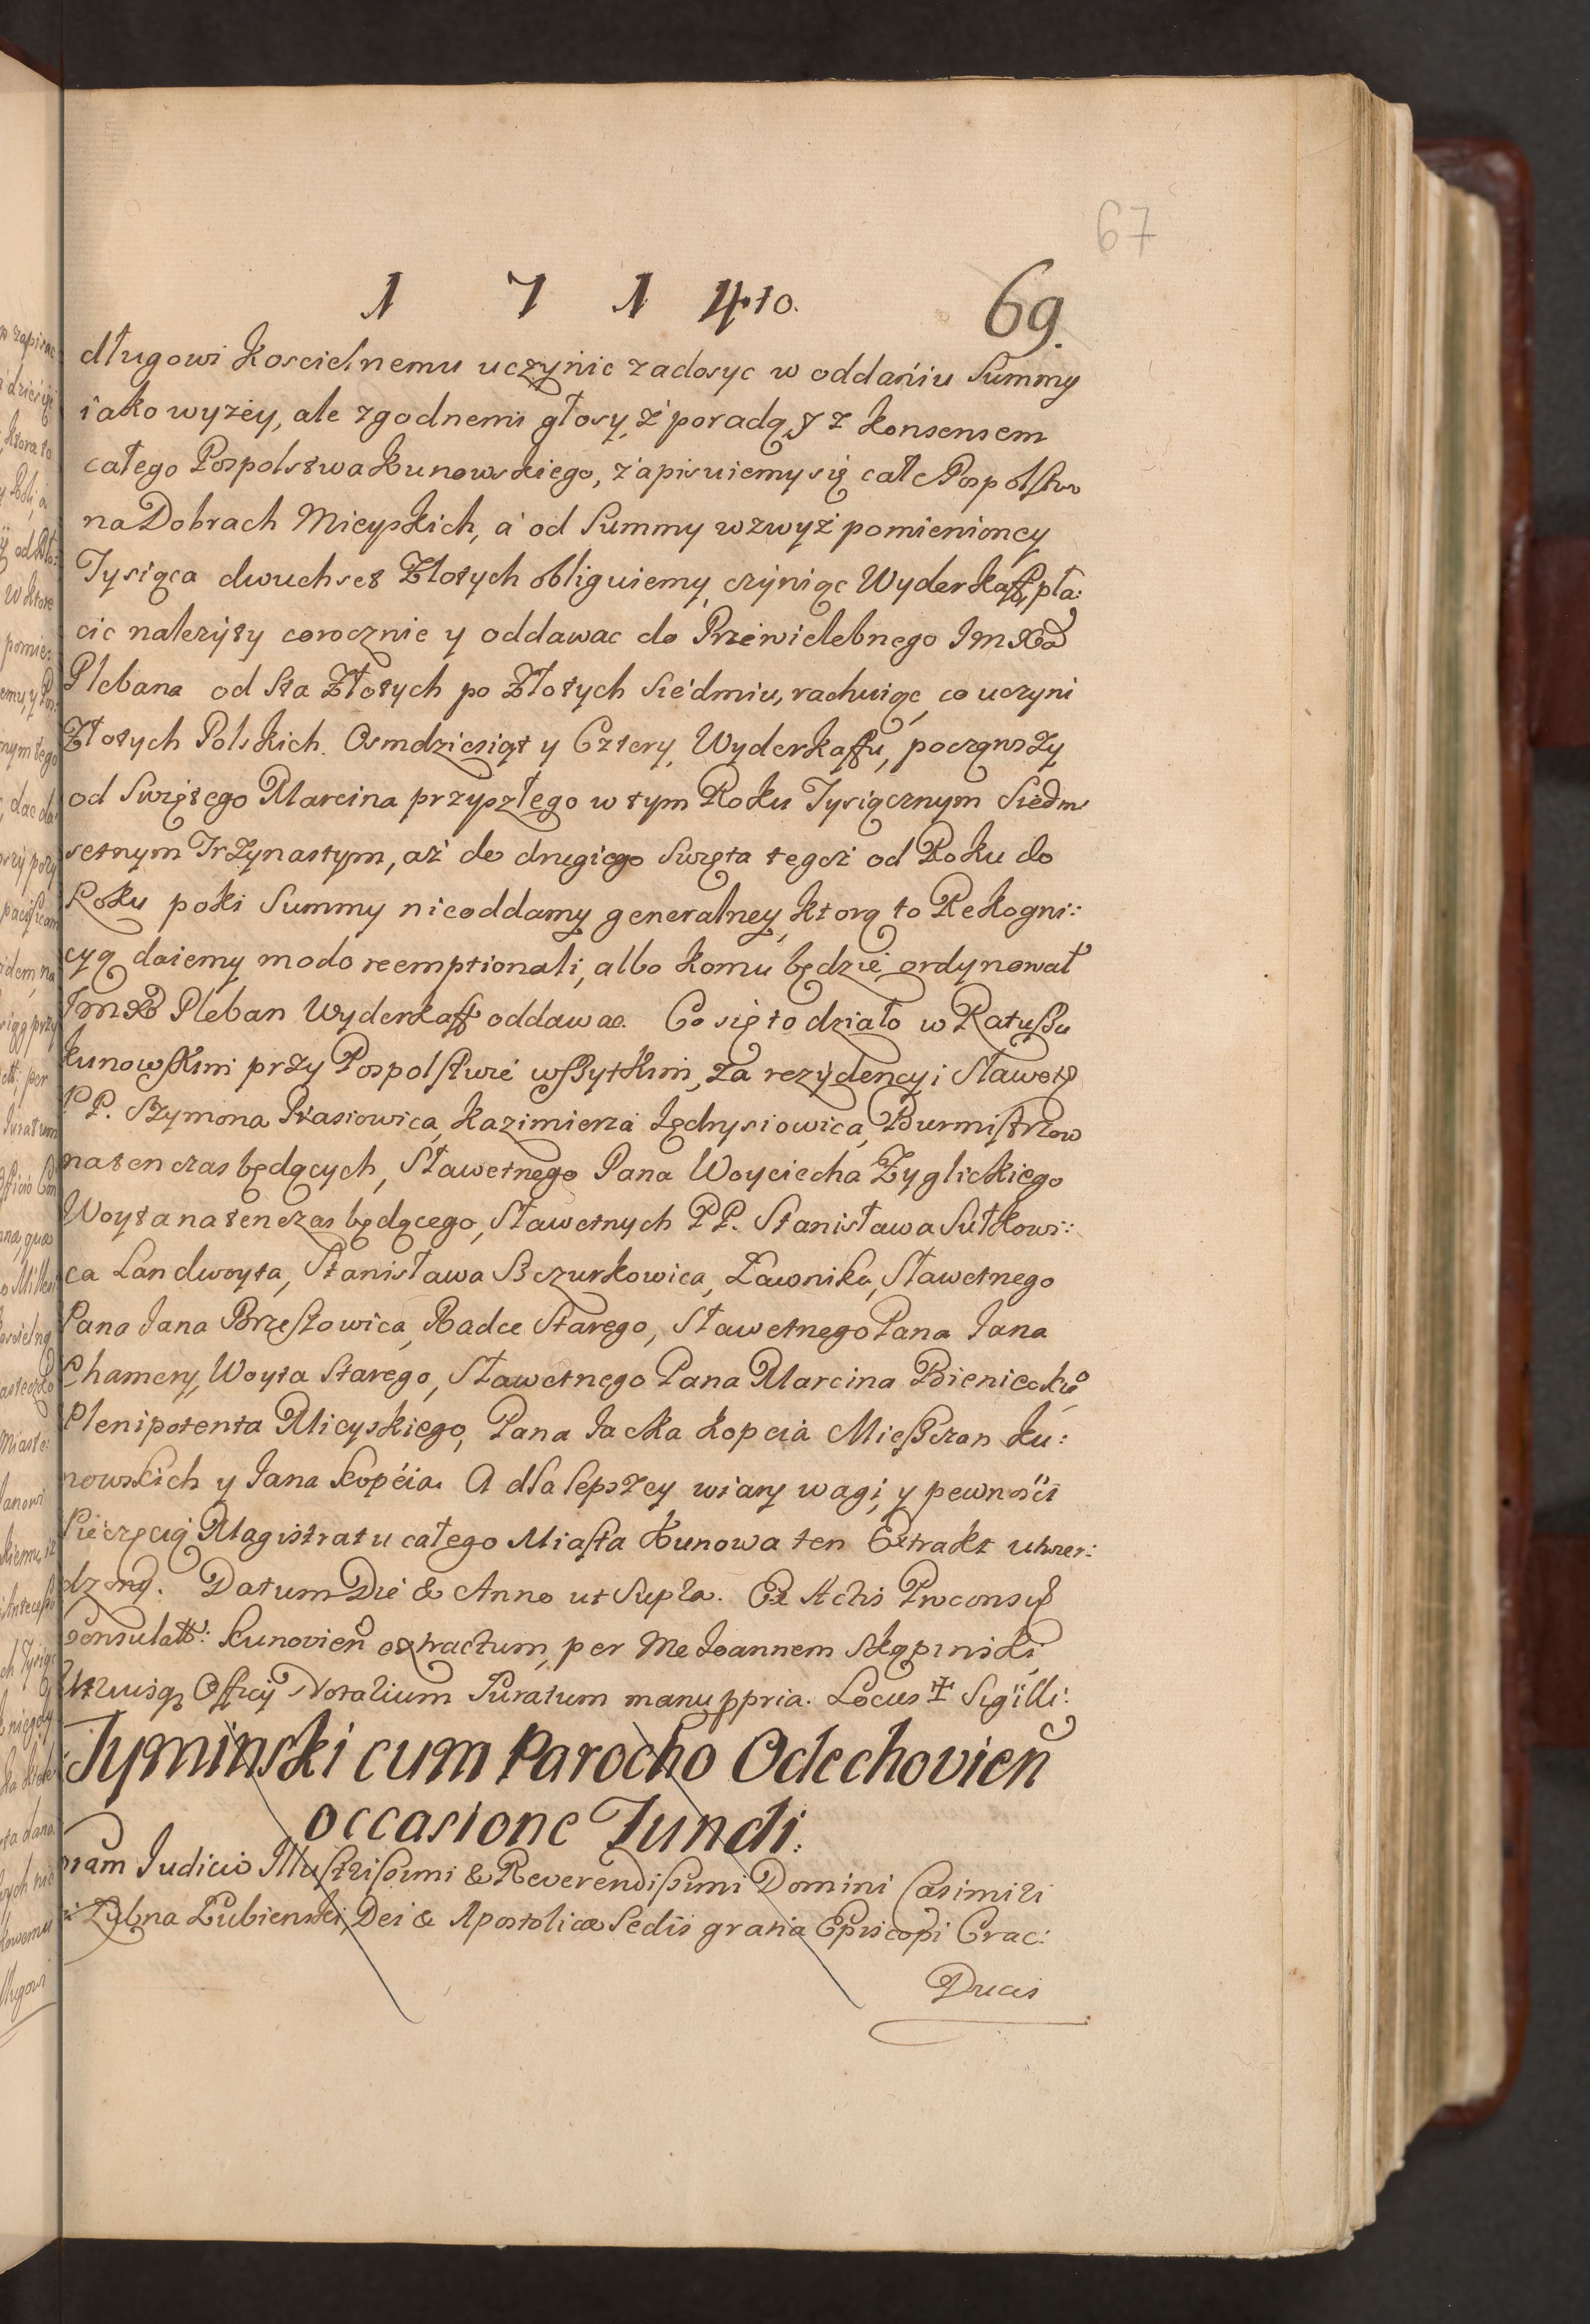 67
1 7 1 4to. 69.
długowi Koscielnemu uczynic zadosyc w oddaniu Summy
iako wyzey, ale zgodnemi głosy, z poradą y z Konsensem
całego Pospolstwa Kunowskiego, zapisuiemy się całe Pospolstwo
na Dobrach Mieyskich, a od Summy wzwyż pomienioney
Tysiąca dwuchset Złotych obliguiemy, czyniąc Wyderkaff pła:
cic nalezyty corocznie y oddawac do Przewielebnego JmXa
Plebana od sta Złotych po Złotych siedmiu, rachuiąc, co uczyni
Złotych Polskich Osmdziesiąt y Cztery, Wyderkaffu, począwszy
od Swiętego Marcina przyszłego w tym Roku Tysiącznym Siedm
setnym Trzynastym, aż do drugiego Swięta tegoż od Roku do
Roku poki Summy nieoddamy generalney, ktorą to Rekogni:
cyą daiemy modo reemptionali, albo komu będzie ordynował
JmX Pleban Wyderkaff oddawac. Co się to działo w Ratuszu
Kunowskim przy Pospolstwie wszytkim, za rezydencyi Sławet
PP. Szymona Ptasiowica, Kazimierza Jędrysiowica, Burmistrzow
natenczas będących, Sławetnego Pana Woyciecha Zyglickiego
Woyta natenczas będącego, Sławetnych PP. Stanisława Sutkowi:
ca Landwoyta, Stanisława Szczurkowica, Ławnika, Sławetnego
Pana Jana Brzestowica, Radce Starego, Sławetnego Pana Jana
Chamery, Woyta Starego, Sławetnego Pana Marcina Bienieckie
Plenipotenta Mieyskiego, Pana Jacka Kopcia Mieszczan Ku:
nowskich y Jana Kopcia. A dla lepszey wiary wagi, y pewności
Pieczęcią Magistratu całego Miasta Kunowa ten Extrakt utwier:
dzony. Datum Die & Anno ut Supra. Ex Actis Proconsul
Consulatt: Kunovien extractum, per Me Joannem Skąpinski
Utriusq Officij Notarium Juratum manu ppria. Locus ☩ Sigilli:
Tyminski cum Parocho Odechovien
occasione Fundi.
ram Judicio Illustrissimi & Reverendissimi Domini Casimiri
Łubna Łubienski, Dei & Apostolicæ Sedis gratia Episcopi Crac:
Ducis